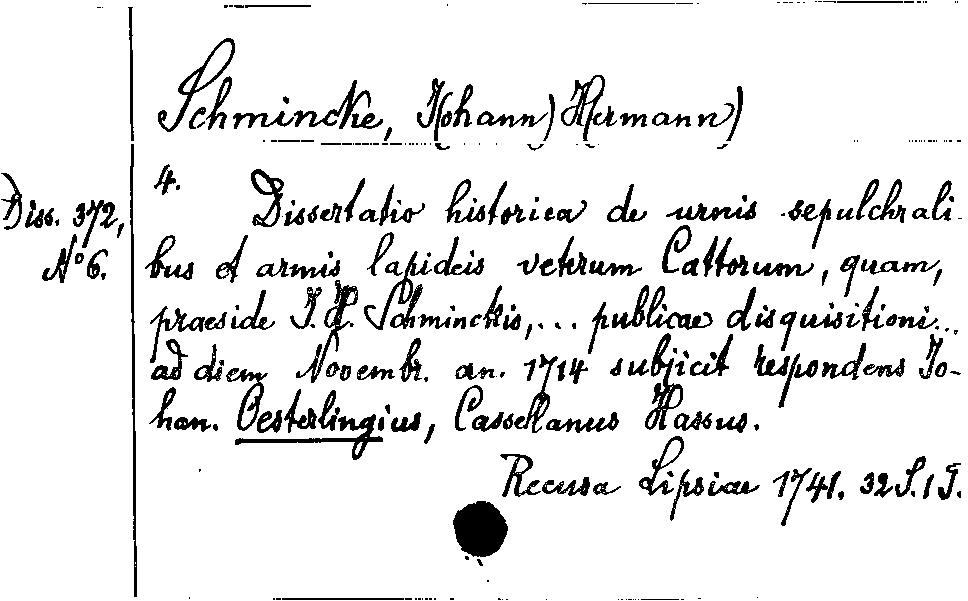 Schmincke, J(ohann) H(ermann)
4.
Diss. 372,
No 6.
Dissertatio historica de urnis sepulchrali-
bus et armis lapideis veterum Cattorum, quam,
praeside J. H. Schminckis,... publicae disquisitioni...
ad diem Novembr. an. 1714 subjicit respondens Jo-
han. Oesterlingius, Cassellanus Hassus.
Recusa Lipsiae 1741. 32 S. 1 T.